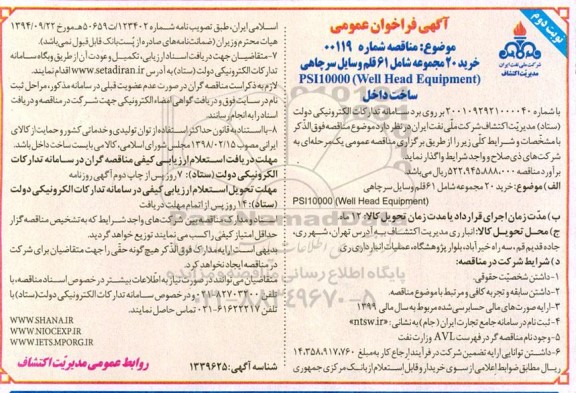 نوبت دوم
آگهی فراخوان عمومی
موضوع: مناقصه شماره ۰۰۱۱۹
خرید ۲۰ مجموعه شامل ۶۱ قلم وسایل سرچاهی
PSI10000 (Well Head Equipment)
ساخت داخل
شرکت ملی نفت ایران
مدیریت اکتشاف
با شماره ۲۰۰۱۰۹۲۹۲۱۰۰۰۰۴۰ بر روی برد سامانه تدارکات الکترونیکی دولت
(ستاد) مدیریّت اکتشاف شرکت ملّی نفت ایران در نظر دارد موضوع مناقصه فوق الذکر
با مشخّصات و شرایط کلّی زیر را از طریق برگزاری مناقصه عمومی یک مرحله‌ای به
شرکت‌های ذی صلاح و واجد شرایط واگذار نماید
برآورد مناقصه ۵۲۲,۹۴۵,۸۸۸,۰۰۰ ریال می‌باشد.
الف) موضوع: خرید ۲۰ مجموعه شامل ۶۱ قلم وسایل سرچاهی
PSI10000 (Well Head Equipment)
ب) مدّت زمان اجرای قرارداد یا مدت زمان تحویل کالا: ۱۲ ماه
ج) محل تحویل کالا: انبار ری مدیریت اکتشاف به آدرس تهران، شهر ری،
جاده قدیم قم، سه راه خیرآباد، بلوار پژوهشگاه، عملیات انبارداری ری
د) شرایط شرکت در مناقصه:
۱- داشتن شخصیّت حقوقی.
۲- داشتن سابقه و تجربه کافی و مرتبط با موضوع مناقصه.
۳- ارایه صورت‌های مالی حسابرسی شده مربوط به سال مالی ۱۳۹۹
۴- ثبت نام در سامانه جامع تجارت ایران (جام) به نشانی: «ntsw.ir»
۵- وجود نام مناقصه گر در فهرست AVL وزارت نفت
۶- داشتن توانایی ارایه تضمین شرکت در فرآیند ارجاع کار به مبلغ ۱۴,۳۵۸,۹۱۷,۷۶۰
ریال مطابق ضوابط اعلامی از سوی خریدار و قابل استعلام از بانک مرکزی جمهوری
اسلامی ایران، طبق تصویب نامه شماره ۱۲۳۴۰۲/ت ۵۰۶۵۹ هـ مورخ ۱۳۹۴/۰۹/۲۲
هیات محترم وزیران (ضمانت‌نامه‌های صادره از پست بانک قابل قبول نمی‌باشد).
۷- متقاضیان جهت دریافت اسناد ارزیابی، تکمیل و عودت آن از طریق وبگاه سامانه
تدارکات الکترونیکی دولت (ستاد) به آدرس www.setadiran.ir اقدام نمایند.
لازم به ذکر است مناقصه گران در صورت عدم عضویت قبلی در سامانه مذکور، مراحل ثبت
نام در سایت فوق و دریافت گواهی امضاء الکترونیکی جهت شرکت در مناقصه و دریافت
اسناد را به انجام رسانند.
۸- با استناد به قانون حداکثر استفاده از توان تولیدی و خدماتی کشور و حمایت از کالای
ایرانی مصوب ۱۳۹۸/۰۲/۱۵ مجلس شورای اسلامی، کالا می بایست ساخت داخل باشد.
مهلت دریافت استعلام ارزیابی کیفی مناقصه گران در سامانه تدارکات
الکترونیکی دولت (ستاد): ۷ روز پس از چاپ دوم آگهی روزنامه
مهلت تحویل استعلام ارزیابی کیفی در سامانه تدارکات الکترونیکی دولت
(ستاد): ۱۴ روز پس از اتمام مهلت دریافت
اسناد و مدارک مناقصه بین شرکت‌های واجد شرایط که به تشخیص مناقصه گزار
حداقل امتیاز کیفی را کسب می نمایند توزیع خواهد گردید.
بدیهی است ارایه مدارک فوق الذکر هیچ گونه حقّی را جهت متقاضیان برای شرکت
در مناقصه ایجاد نخواهد کرد.
متقاضیان می توانند در صورت نیاز به اطّلاعات بیشتر در خصوص اسناد مناقصه، با
تلفن ۸۲۷۰۳۴۰۰-۰۲۱ و در خصوص سامانه تدارکات الکترونیکی دولت (ستاد) با
تلفن ۶۱۶۲۲۲۱۷-۰۲۱ تماس حاصل نمایند.
WWW.SHANA.IR
WWW.NIOCEXP.IR
WWW.IETS.MPORG.IR
شناسه آگهی: ۱۳۳۹۶۲۵
روابط عمومی مدیریّت اکتشاف
پایگاه اطلاع رسانی مناقصه و مزایده
۰۲۱-۸۸۳۴۹۶۷۰-۵